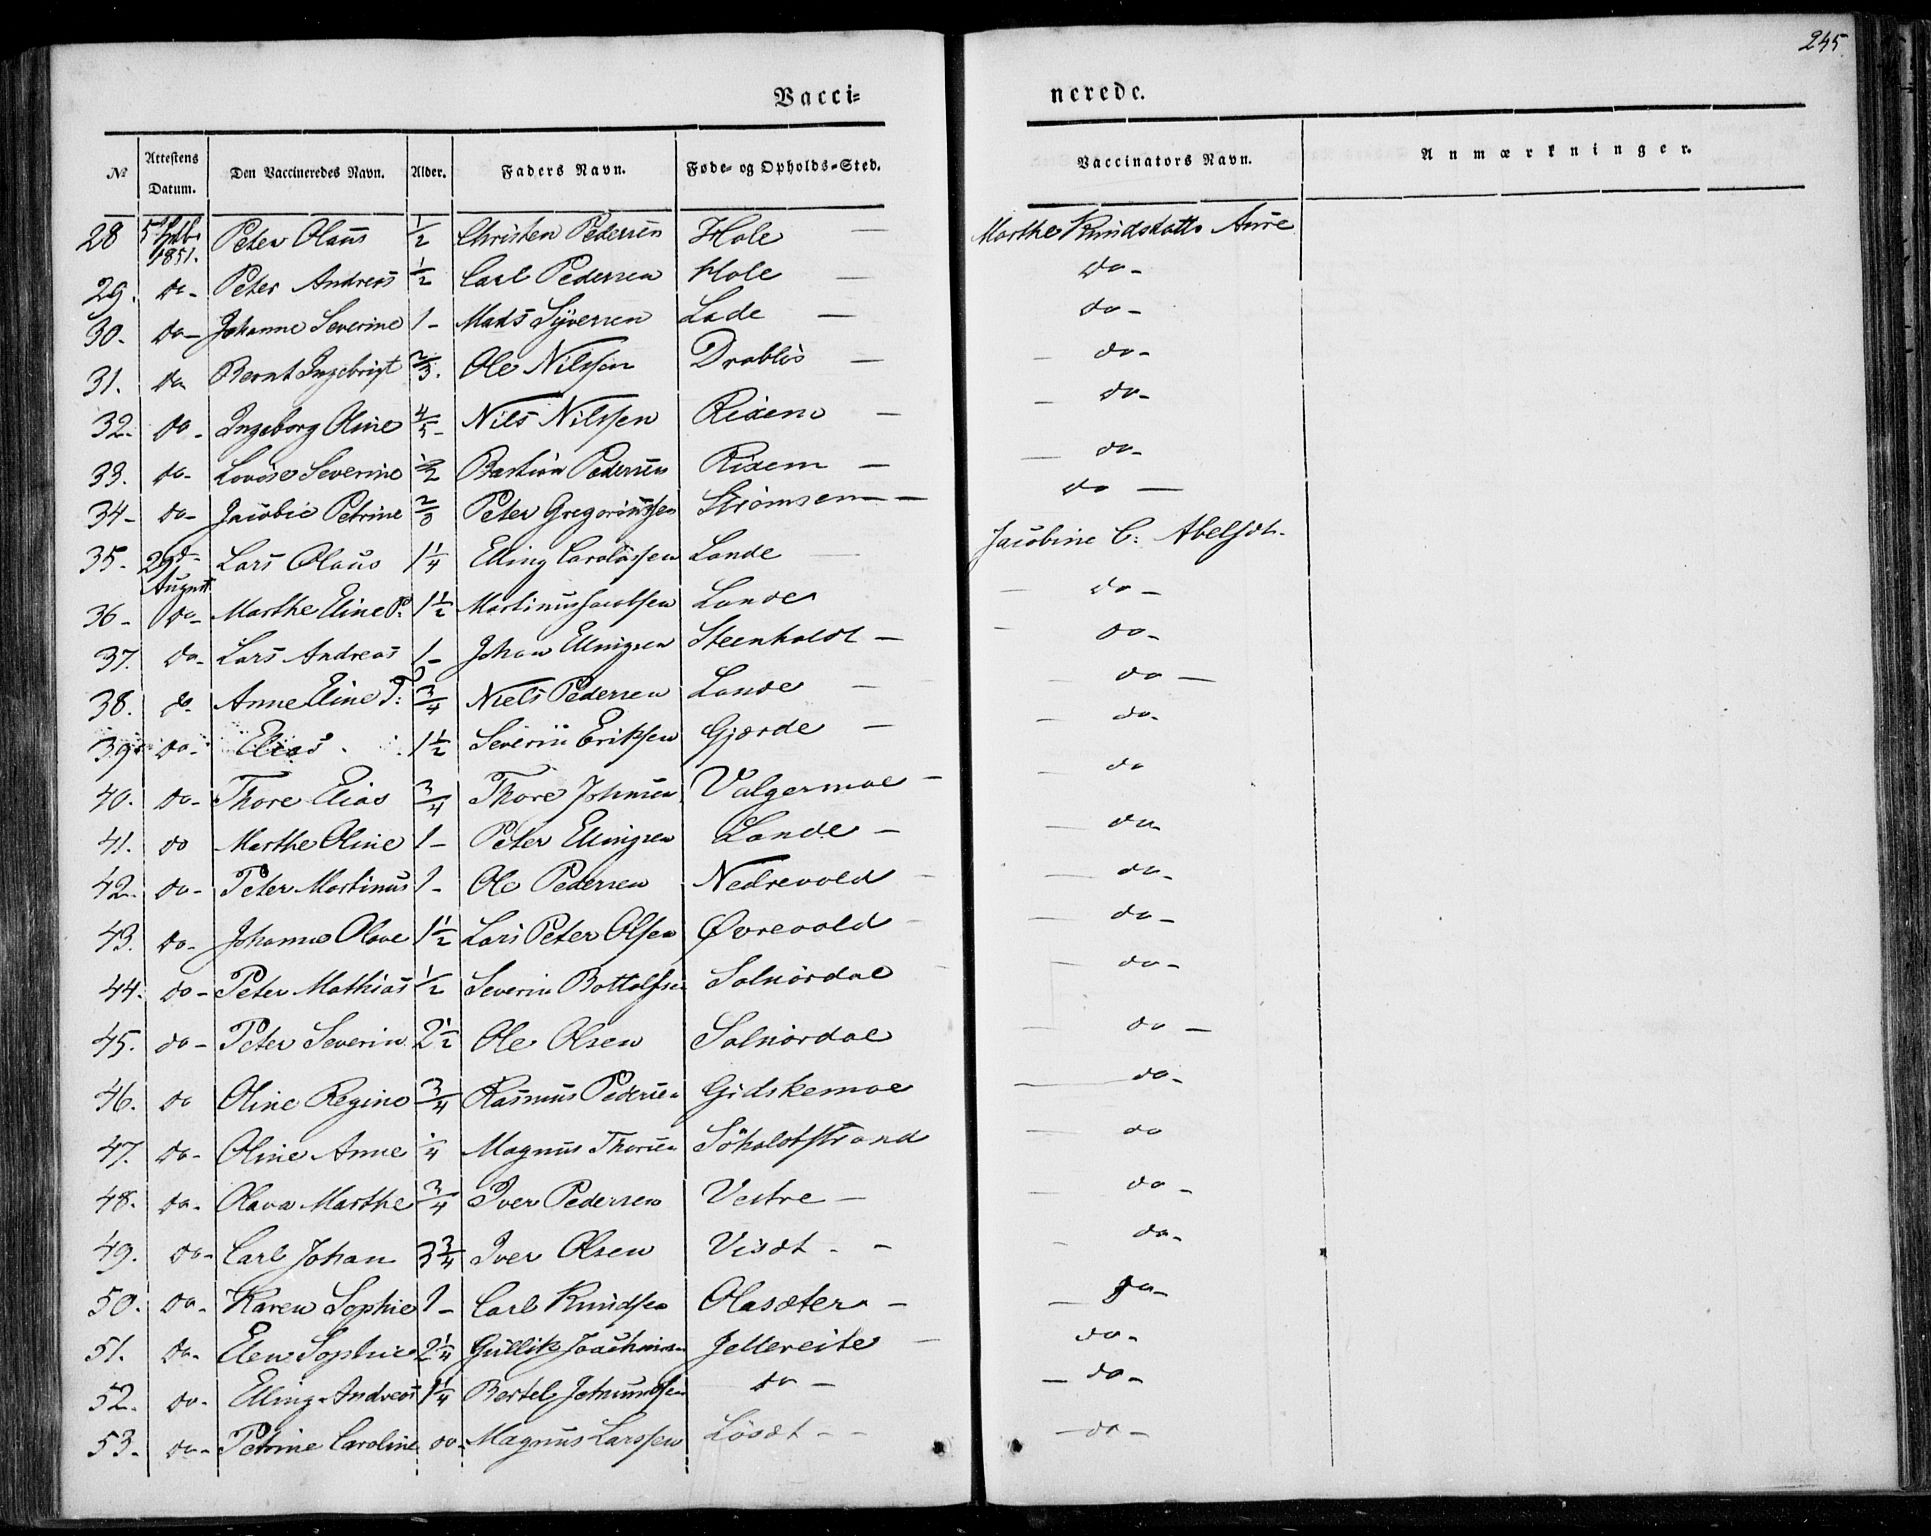 245.
Vacci=
nerede.
№ Attestens Datum. Den Vaccineredes Navn. Alder. Faders Navn. Føde- og Opholds-Sted. Vaccinators Navn. Anmærkninger.
28 1851. Peter Olaus ½ Christen Pedersen Hole — Marthe Knudsdatter Aure
29. do- Peter Andreas ½ Carl Pedersen Hole — do-
30- do- Johanne Severine 1- Mads Syversen Lade — do-
31. do Bernt Ingebrigt ⅔. Ole Nilssen Drabløs — do-
32. do- Ingeborg Oline ⅘- Nils Nilssen Rixem — do-
33. do- Lovise Severine ½ Bastian Pedersen Rixem — do-
34- do- Jacobie Petrine ⅔ Peter Gregoriussen Strømsem — do —
35- 29de August Lars Olaus 1¼ Elling Carolussen Lande Jacobine C: Abelsdt.
36- do- Marthe Eline P. 1½ Martinus Jacobsen Lande — do —
37. do- Lars Andreas 1- Johan Ellingsen Steenholdt — do-
38. do. Anne Eline P: ¾ Niels Pedersen Lande — do —
39. do- Elias 1½ Severin Eriksen Gjærde — do-
40. do- Thore Elias ¾ Thore Johnsen Valgermoe — do
41. do Marthe Oline 1- Peter Ellingsen Lande — do-
42. do- Peter Martinus 1- Ole Pedersen Nedrevold — do-
43. do- Johanne Olave 1½ Lars Peter Olsen Øvrevold — do-
44. do- Peter Mathias ½ Severin Bottolfsen Solnørdal — do-
45. do- Peter Severin 2½ Ole Olsen Solnørdal — do —
46. do Oline Regine ¾ Rasmus Pedersen Gidskemoe — do-
47. do- Oline Anne ¼ Magnus Thorsen Søholdtstrand — do
48. do- Olava Marthe ¾ Iver Pedersen Vestre — do-
49. do- Carl Johan 3¾ Iver Olsen Visdt. - — do-
50. do- Karen Sophie 1- Carl Knudsen Olasæter — do-
51. do- Elen Sophie 2¼ Gullik Joachimsen Jellereite — do-
52. do- Elling Andreas 1¼ Bertel Johnsen do — do-
53- do- Petrine Caroline do- Magnus Larssen Løsdt - - — do —